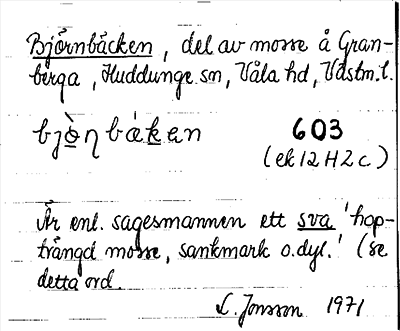 Björnbäcken, del av mosse å Gran-
berga, Huddunge sn, Våla hd, Västm.l.
bjὸ̱ηbάḵan 603
(ek 12 H 2 c)
Är enl. sagesmannen ett sva 'hop-
trängd mosse, sankmark o.dyl.' (se
detta ord.
L. Jonsson 1971